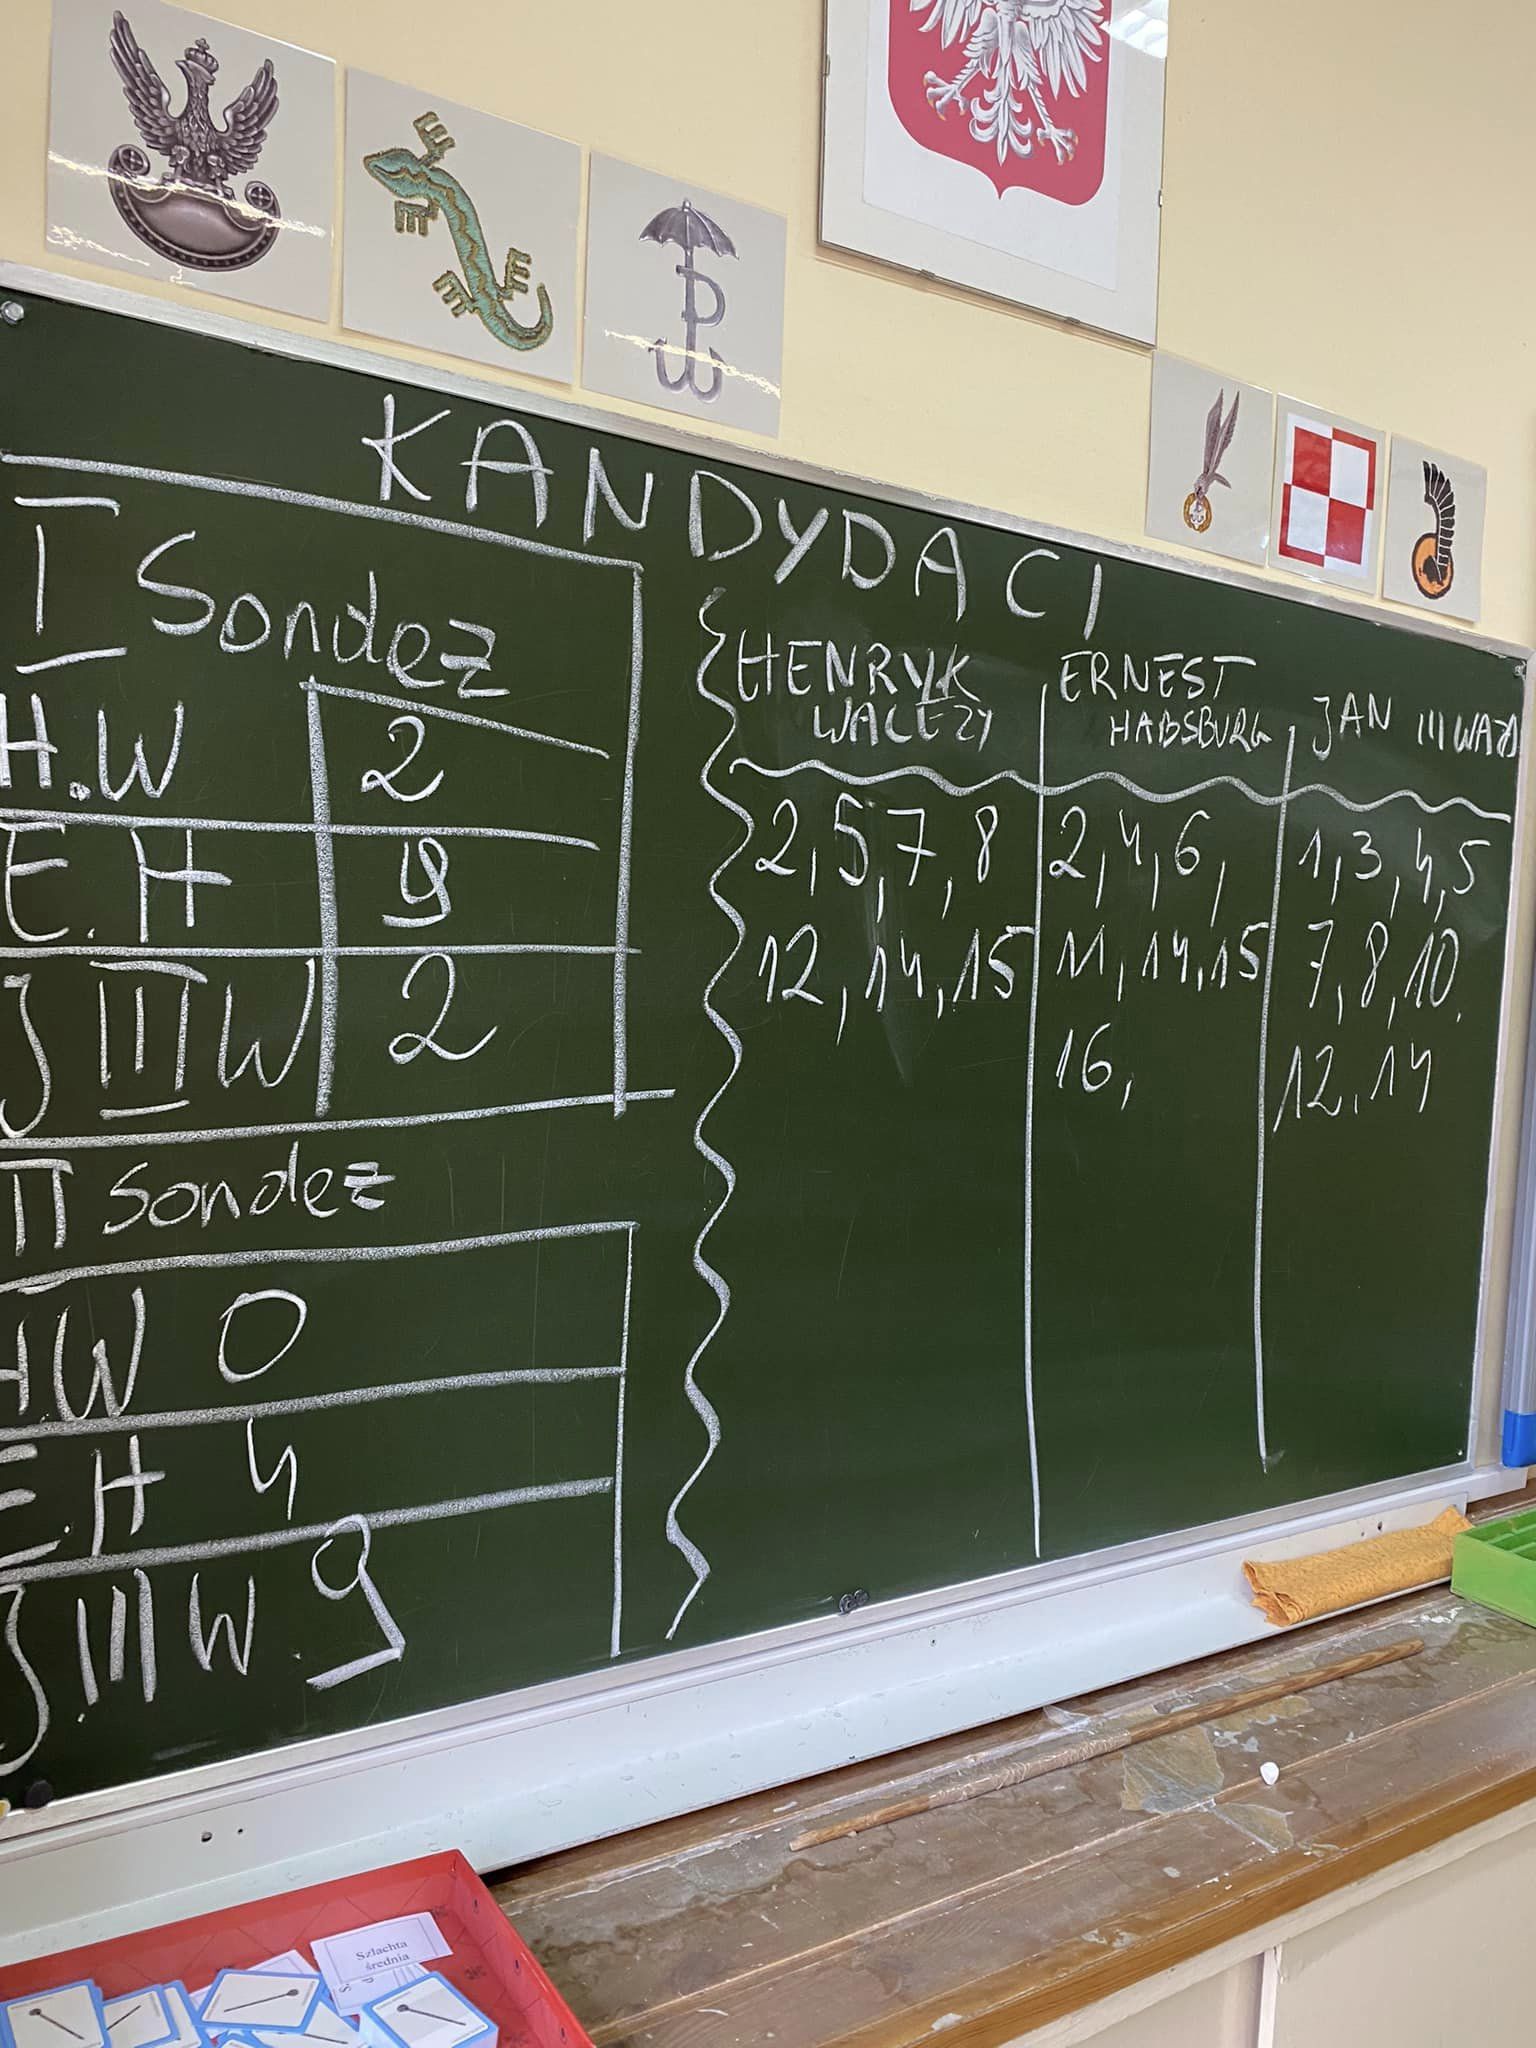 KANDYDACI
I Sondez
H.W 2
E.H 9
J III W 2
II Sondez
HW 0
E.H 4
J.III W. 9
HENRYK
WALEZY
ERNEST
HABSBURG
JAN III WAZA
2, 5, 7, 8
12, 14, 15
2, 4, 6,
11, 14, 15
16,
1, 3, 4, 5
7, 8, 10.
12, 14
Szlachta
średnia